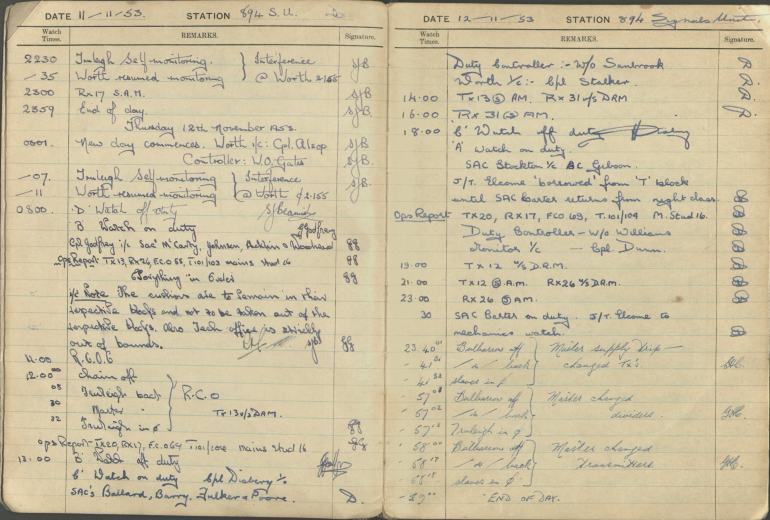 DATE 11-11-53. STATION 894 S.U.
Watch Times. REMARKS. Signature.
2230 Truleigh Self-monitoring. Interference SJB
-35 Worth resumed monitoring @ Worth 2.155
2300 Rx17 S.A.M. SJB
2359 End of day. SJB.
Thursday 12th November 1953.
0001. New day commences. Worth i/c: Cpl. Alsop SJB
Controller: W.O. Gates SJB.
-07. Truleigh Self-monitoring Interference SJB.
-11 Worth resumed monitoring @ Worth 2.155
0800. 'D' Watch off duty
B Watch on duty Godfrey
Cpl Godfrey i/c Sac McCarthy, Johnson, & Woodhead gg
Ops Report Tx13, Rx24, F.C.O 65, T101/103 mains stud 16 gg
Everything in Order gg
i/c Note The cushions are to remain in their
respective blocks and not to be taken out of the
respective blocks. Also Tech office is strictly
out of bounds. gg
11.00 R.6.0.6
12.00 Chain off
05 Truleigh back R.C.O
30 Master " Tx13 u/s DAM.
32 Truleigh in ø gg
Ops Report Tx20, Rx17, F.C.O 64 T101/102 mains stud 16 gg
13.00 'B' off duty
'C' Watch on duty Cpl i/c
SAC's Ballard, Barry, Fulker & Poore. D.
DATE 12-11-53 STATION 894 Signals Unit.
Watch Times. REMARKS. Signature.
Duty Controller:- W/o Sambrook D
Worth i/c:- Cpl Stalker. D.
14.00 Tx13 S AM. Rx31 u/s DAM D.
16.00 Rx 31 S AM. D.
18.00 'C' Watch off duty
'A' Watch on duty.
SAC Stockton i/c AC Gibson.
J/T. Elcome 'borrowed' from 'T' block
until SAC Barter returns from night class.
Ops Report TX20, RX17, FCO 63, T.101/104 M. Stud 16.
Duty Controller - W/o Williams
Monitor i/c - Cpl. Dunn.
19.00 Tx12 u/s D.A.M.
21.00 Tx12 S.A.M. Rx26 u/s D.A.M.
23.00 Rx26 S AM.
30 SAC Barter on duty. J/T. Elcome to
mechanics watch.
23.40 off Master supply Drip
-41 " / " / back changed Tx's.
-41 slaves in ø
-57 off Master changed
-57 " / " / back dividers.
-57 Truleigh in ø
58 off Master changed
-58 " / " / back Transmitters.
-58 slaves in ø
-59 "END OF DAY.